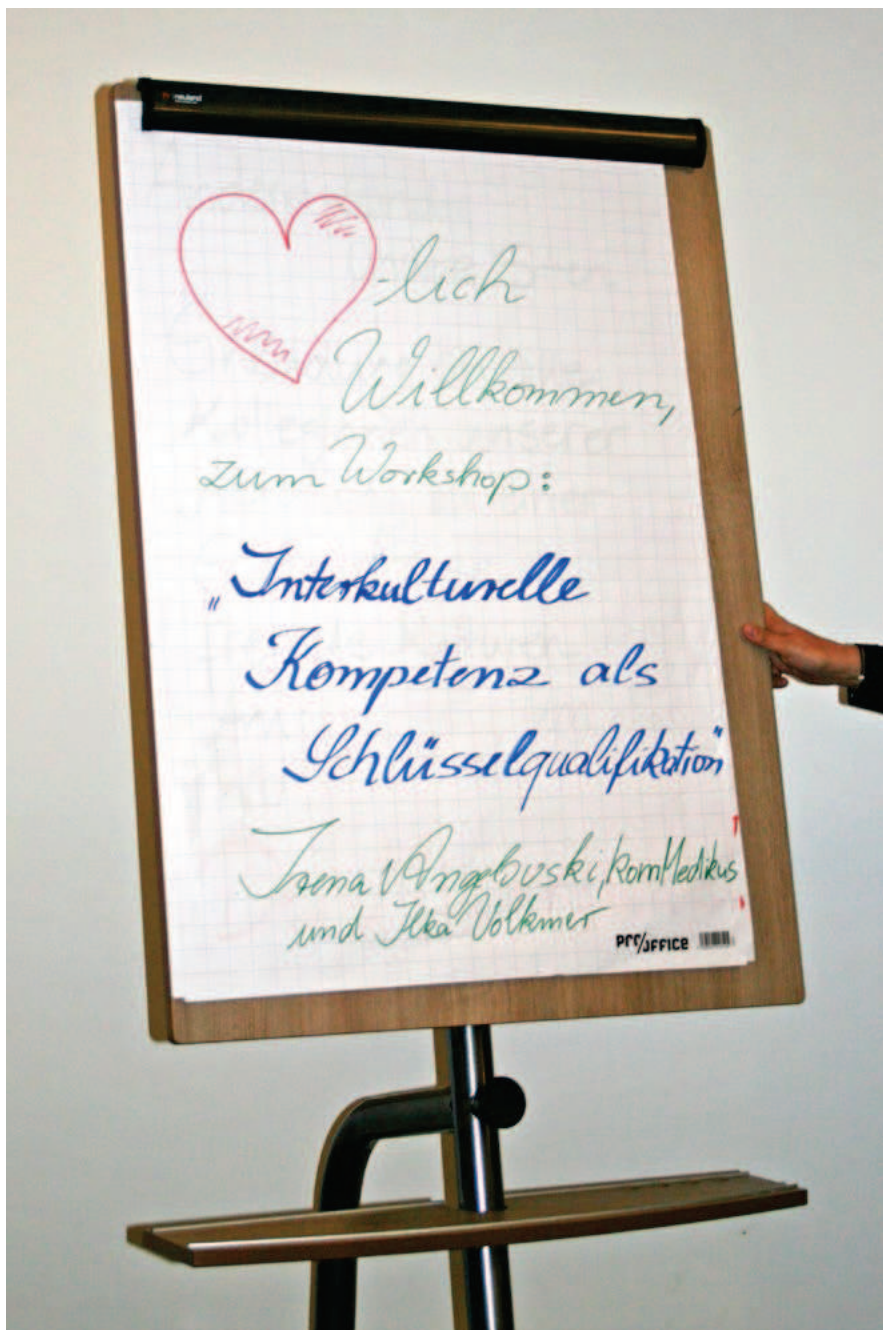 neuland
-lich
Willkommen,
zum Workshop:
„Interkulturelle
Kompetenz als
Schlüsselqualifikation"
Irena Angelovski, komMedikus
und Ilka Volkmer
PRO/OFFICE